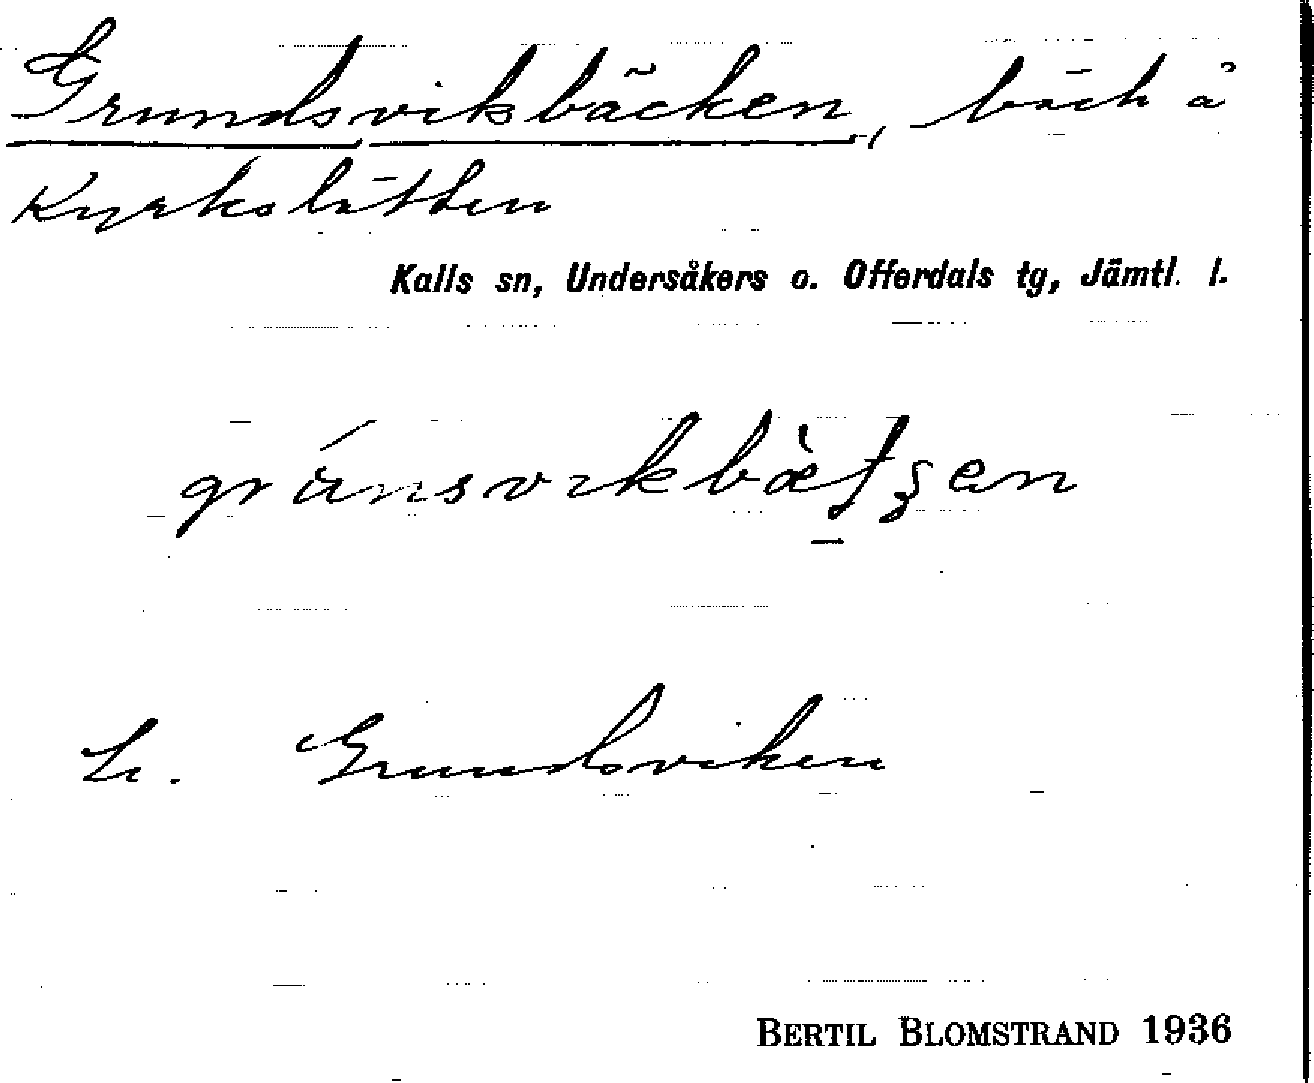 Grundsvikbäcken, bäck å
Kyrkslätten
Kalls sn, Undersåkers o. Offerdals tg, Jämtl. l.
Grundsviken
BERTIL BLOMSTRAND 1936